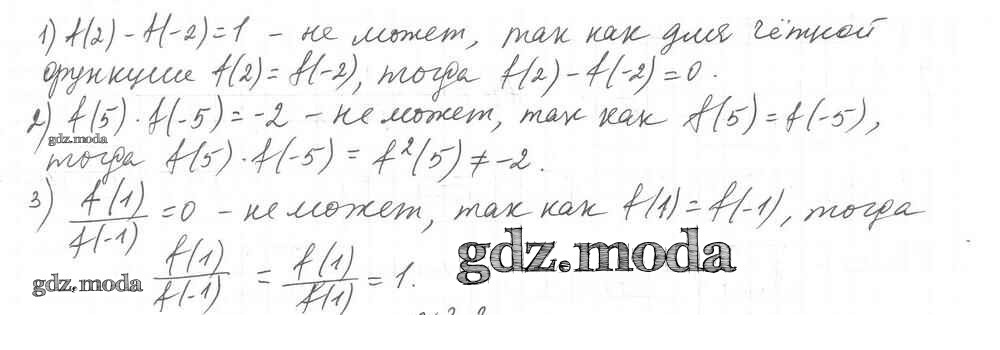 1) f(2) - f(-2) = 1 - не может, так как для чётной
функции f(2) = f(-2), тогда f(2) - f(-2) = 0.
2) f(5) · f(-5) = -2 - не может, так как f(5) = f(-5),
gdz.moda
тогда f(5) · f(-5) = f²(5) ≠ -2.
3) f(1)/f(-1) = 0 - не может, так как f(1) = f(-1), тогда
gdz.moda
f(1)/f(-1) = f(1)/f(1) = 1.
gdz.moda